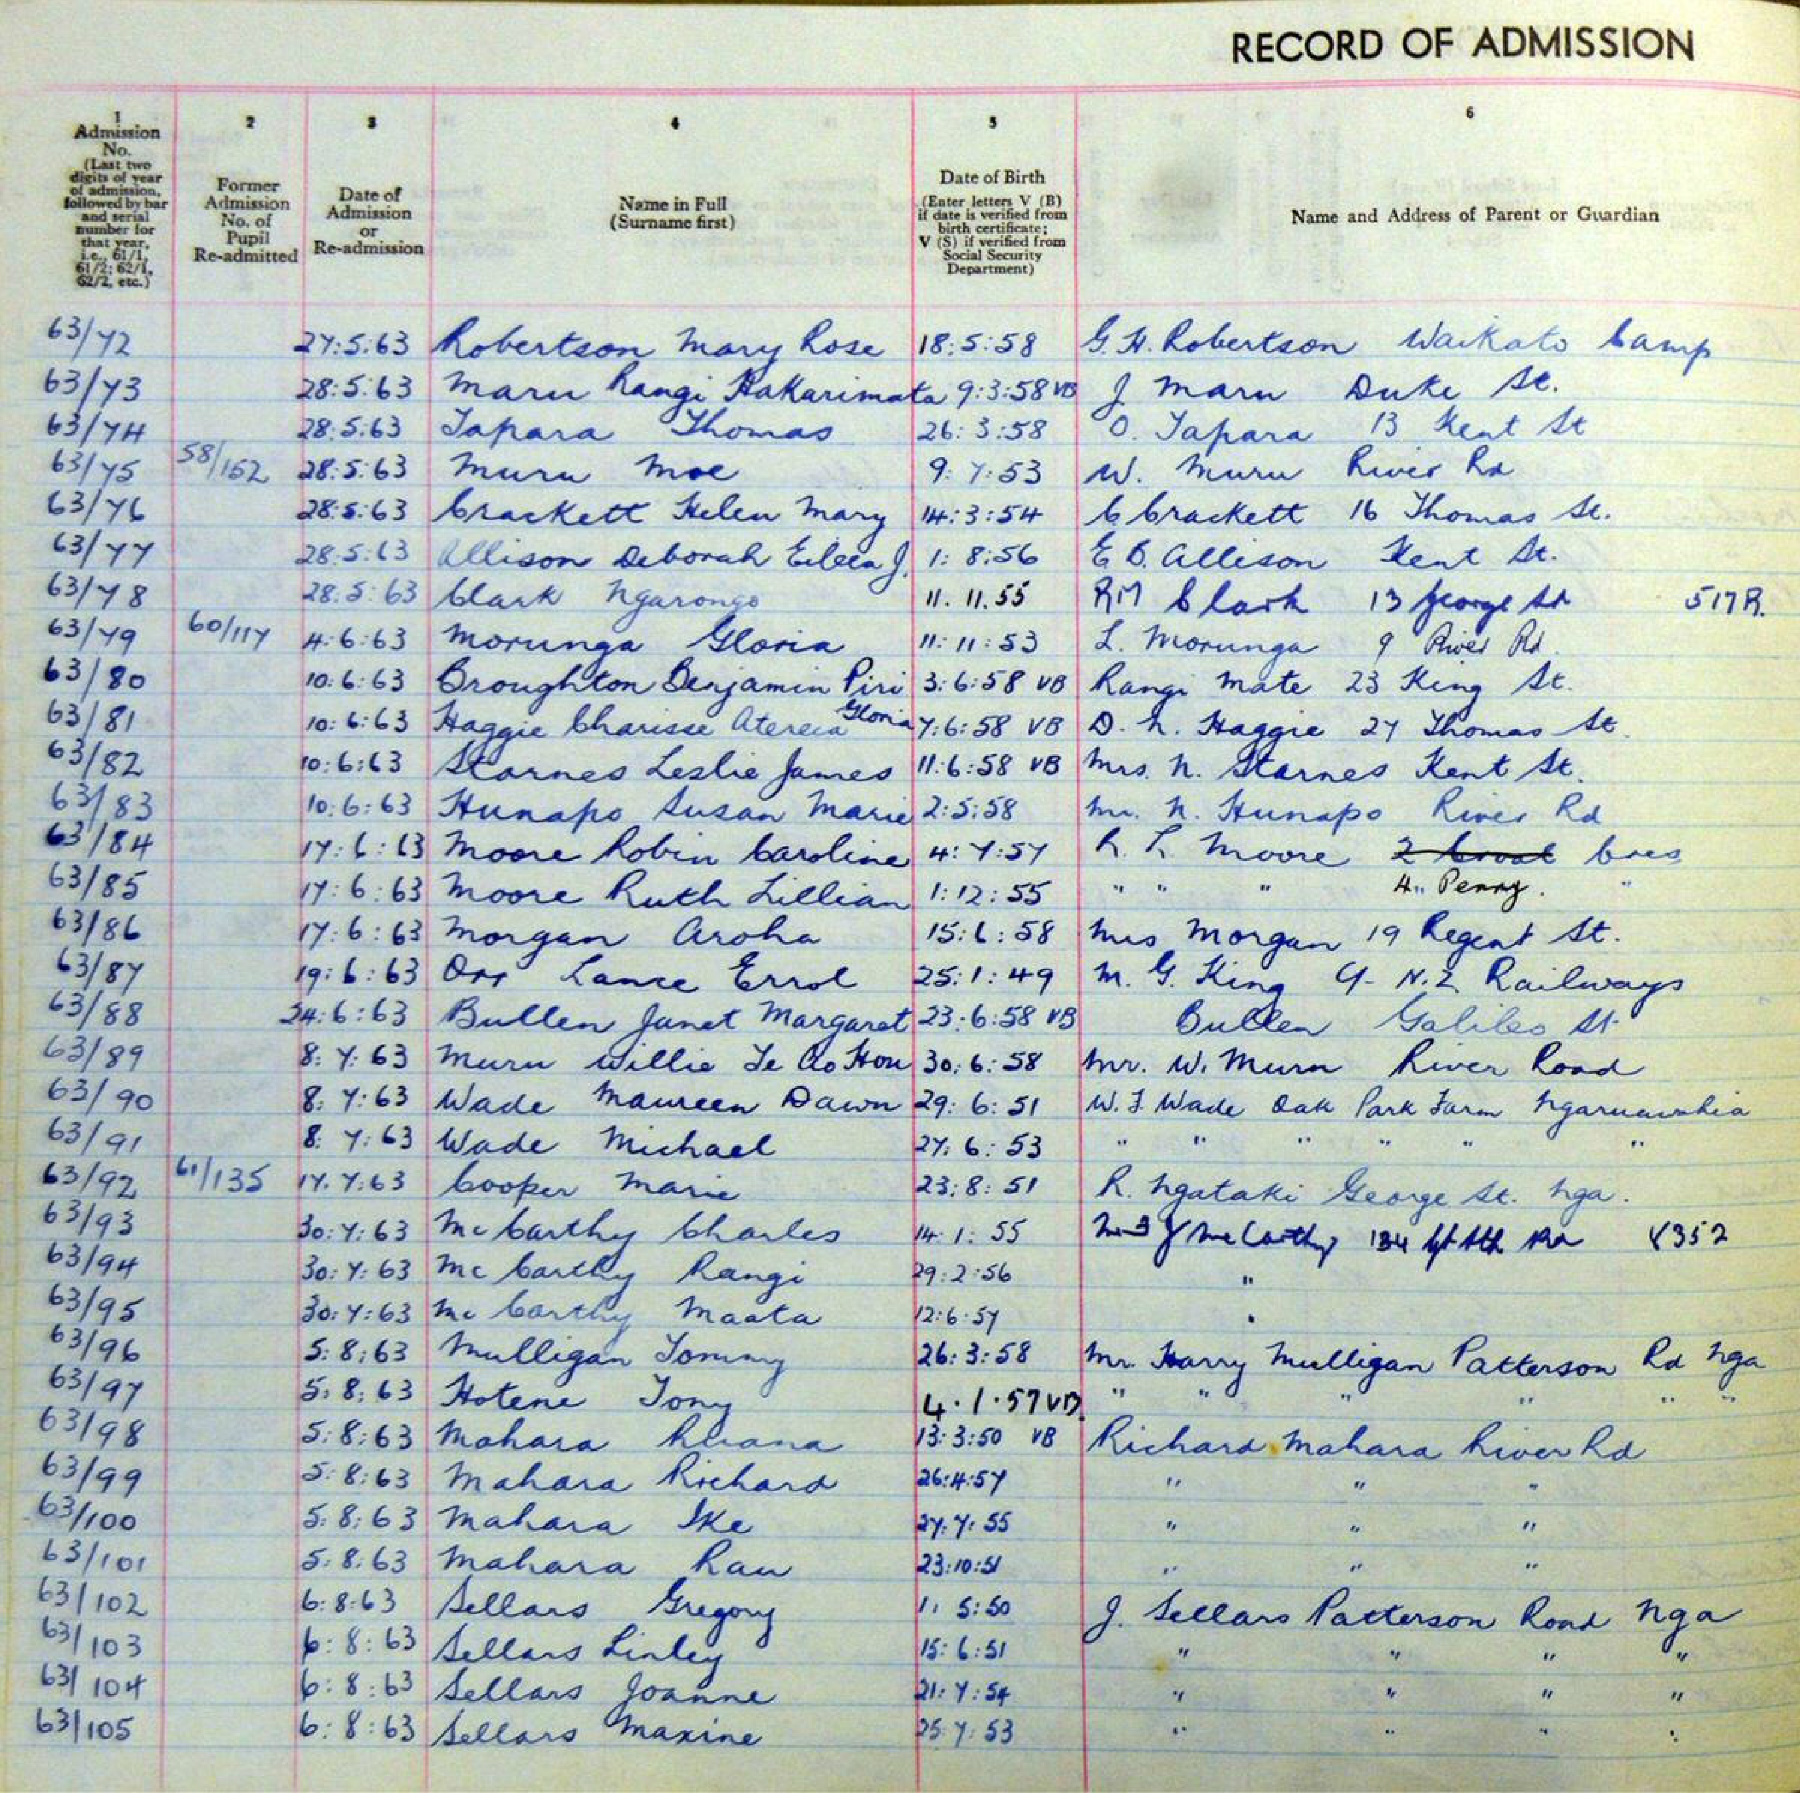 RECORD OF ADMISSION
1 2 3 4 5 6
Admission No. (Last two digits of year of admission, followed by bar and serial number for that year, i.e., 61/1, 61/2; 62/1, 62/2, etc.)
Former Admission No. of Pupil Re-admitted
Date of Admission or Re-admission
Name in Full (Surname first)
Date of Birth (Enter letters V (B) if date is verified from birth certificate; V (S) if verified from Social Security Department)
Name and Address of Parent or Guardian
63/72 27:5:63 Robertson Mary Rose 18:5:58 G. H. Robertson Waikato Camp
63/73 28:5:63 Maru Rangi Hakarimata 9:3:58 VB J Maru Duke St.
63/74 28:5:63 Tapara Thomas 26:3:58 O. Tapara 13 Kent St
63/75 58/152 28:5:63 Muru Moe 9:7:53 W. Muru River Rd
63/76 28:5:63 Crackett Helen Mary 14:3:54 C Crackett 16 Thomas St.
63/77 28:5:63 Allison Deborah Eileen J. 1:8:56 E B. Allison Kent St.
63/78 28:5:63 Clark Ngarongo 11.11.55 RM Clark 13 George St 517R.
63/79 60/117 4:6:63 Morunga Gloria 11:11:53 L. Morunga 9 River Rd.
63/80 10:6:63 Broughton Benjamin Piri 3:6:58 VB Rangi Mate 23 King St.
63/81 10:6:63 Haggie Charisse Atereia Gloria 7:6:58 VB D. N. Haggie 27 Thomas St.
63/82 10:6:63 Starnes Leslie James 11:6:58 VB Mrs. N. Starnes Kent St.
63/83 10:6:63 Hunapo Susan Marie 2:5:58 Mr. N. Hunapo River Rd
63/84 17:6:63 Moore Robin Caroline 4:7:57 R. L Moore 2 Cres
63/85 17:6:63 Moore Ruth Lillian 1:12:55 " " " 4 Penny. "
63/86 17:6:63 Morgan Aroha 15:6:58 Mrs Morgan 19 Regent St.
63/87 19:6:63 Orr Lance Errol 25:1:49 M. G. King N.Z. Railways
63/88 24:6:63 Bullen Janet Margaret 23:6:58 VB Bullen Galileo St
63/89 8:7:63 Muru Willie Te Ao Hou 30:6:58 Mr. W. Muru River Road
63/90 8:7:63 Wade Maureen Dawn 29:6:51 W. J. Wade Oak Park Farm Ngaruawahia
63/91 8:7:63 Wade Michael 27:6:53 " " " " " "
63/92 61/135 17.7:63 Cooper Marie 23:8:51 R. Ngataki George St. Nga.
63/93 30:7:63 McCarthy Charles 14:1:55 J McCarthy 134 Gt Sth Rd 8352
63/94 30:7:63 McCarthy Rangi 29:2:56 "
63/95 30:7:63 McCarthy Maata 12:6:57 "
63/96 5:8:63 Mulligan Tommy 26:3:58 Mr. Harry Mulligan Patterson Rd Nga
63/97 5:8:63 Hotene Tony 4.1.57 VB. " " " " " "
63/98 5:8:63 Mahara Ruana 13:3:50 VB Richard Mahara River Rd
63/99 5:8:63 Mahara Richard 26:4:57 " " "
63/100 5:8:63 Mahara Ike 27:7:55 " " "
63/101 5:8:63 Mahara Rau 23:10:51 " " "
63/102 6:8:63 Sellars Gregory 1:5:50 J. Sellars Patterson Road Nga
63/103 6:8:63 Sellars Linley 15:6:51 " " " "
63/104 6:8:63 Sellars Joanne 21:7:54 " " " "
63/105 6:8:63 Sellars Maxine 25:7:53 " " " "